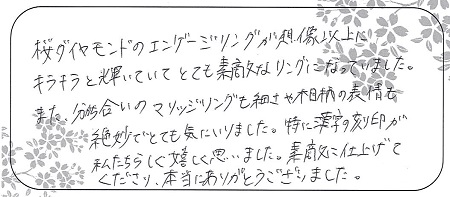 桜ダイヤモンドのエンゲージリングが想像以上に
キラキラと輝いていてとても素敵なリングになっていました。
また、分かち合いのマリッジリングも細さや木目柄の表情も
絶妙でとても気にいりました。特に漢字の刻印が
私たちらしく嬉しく思いました。素敵に仕上げて
くださり、本当にありがとうございました。